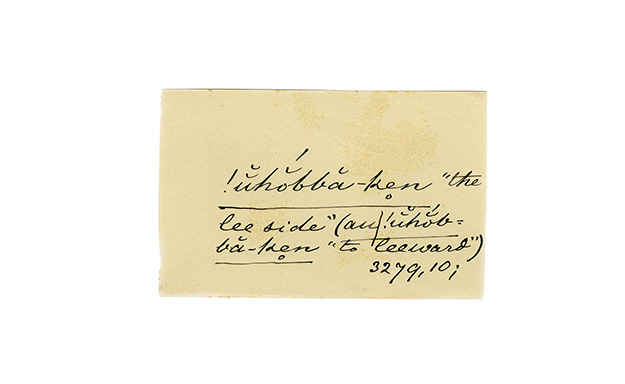 !ŭhŏ́bbă-ke̥n "the
lee side" (au) !ŭhŏ́b=
bă-ke̥n "to leeward")
3279,10;